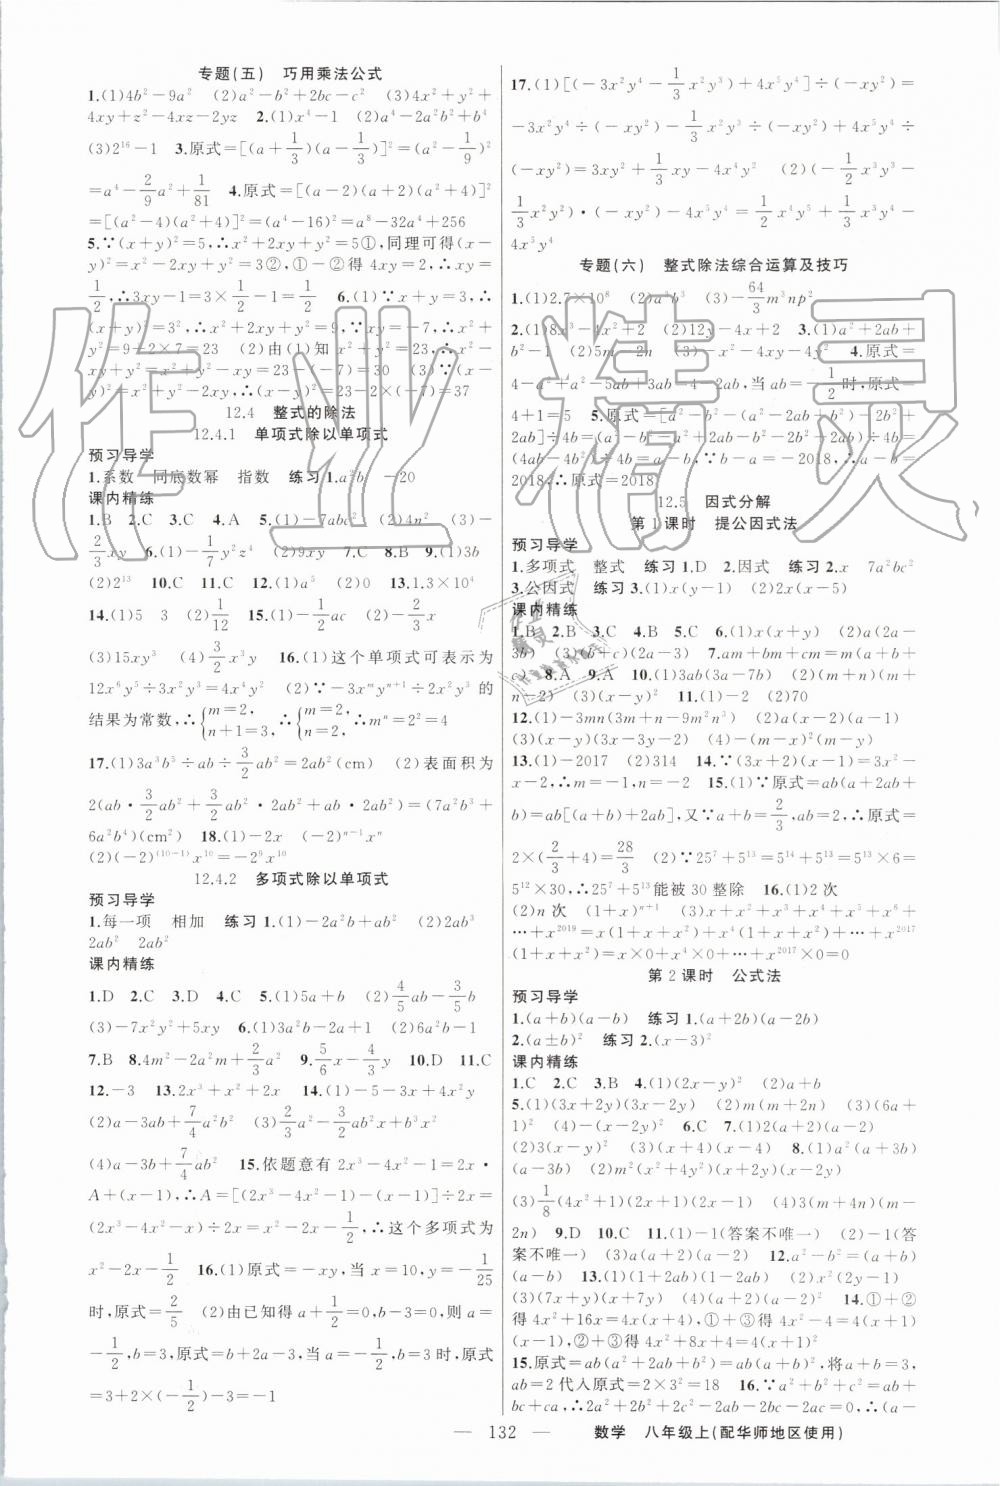 专题(五)　巧用乘法公式
1.(1)4b²－9a²　(2)a²－b²＋2bc－c²　(3)4x²＋y²＋
4xy＋z²－4xz－2yz　2.(1)x⁴－1　(2)a⁴－2a²b²＋b⁴
(3)2¹⁶－1　3.原式＝[(a＋1/3)(a－1/3)]²＝(a²－1/9)²
＝a⁴－2/9a²＋1/81　4.原式＝[(a－2)(a＋2)(a²＋4)]²
＝[(a²－4)(a²＋4)]²＝(a⁴－16)²＝a⁸－32a⁴＋256
5.∵(x＋y)²＝5,∴x²＋2xy＋y²＝5①,同理可得(x－
y)²＝x²－2xy＋y²＝3②,①－②得4xy＝2,∴xy＝
1/2,∴3xy－1＝3×1/2－1＝1/2　6.(1)∵x＋y＝3,∴
(x＋y)²＝3²,∴x²＋2xy＋y²＝9,∵xy＝－7,∴x²＋
y²＝9－2xy＝23　(2)由(1)知x²＋y²＝23,∴x²－
xy＋y²＝x²＋y²－xy＝23－(－7)＝30　(3)(x－
y)²＝x²＋y²－2xy,∴(x－y)²＝23－2×(－7)＝37
12.4　整式的除法
12.4.1　单项式除以单项式
预习导学
1.系数　同底数幂　指数　练习1.a²b　－20
课内精练
1.B　2.C　3.C　4.A　5.(1)－7abc²　(2)4n²　(3)－
2/3xy　6.(1)－1/7y²　(2)9xy　7.C　8.B　9.(1)3b
(2)2¹³　10.C　11.C　12.(1)a⁵　(2)0　13.3×10⁴
14.(1)5　3　(2)1/12　15.(1)－1/2ac　(2)－2/3x
(3)15xy³　(4)3/2x³y　16.(1)这个单项式可表示为
12x⁶y⁵÷3x²y³＝4x⁴y²　(2)∵－3xᵐyⁿ⁺¹÷2x²y³的
结果为常数,∴{m＝2,　∴{m＝2,∴mⁿ＝2²＝4
n＋1＝3.　n＝2.
17.(1)3a³b⁵÷ab÷3/2ab²＝2ab²(cm)　(2)表面积为
2(ab·3/2ab²＋3/2ab²·2ab²＋ab·2ab²)＝(7a²b³＋
6a²b⁴)(cm²)　18.(1)－2x　(－2)ⁿ⁻¹xⁿ
(2)(－2)⁽¹⁰⁻¹⁾x¹⁰＝－2⁹x¹⁰
12.4.2　多项式除以单项式
预习导学
1.每一项　相加　练习1.(1)－2a²b＋ab²　(2)2ab³
2ab²　2ab²
课内精练
1.D　2.C　3.D　4.D　5.(1)5a＋b　(2)4/5ab－3/5b
(3)－7x²y²＋5xy　6.(1)3a²b－2a＋1　(2)6a²b－1
7.B　8.4m²－2a²m＋2/3a²　9.5/6x－4/3y　10.D　11.C
12.－3　13.2x³＋x²＋2x　14.(1)－5－3x＋4x²y
(2)a－3ab＋7/4a²b²　(3)2/3a²－3/2ab²x＋b³x²
(4)a－3b＋7/4ab²　15.依题意有2x³－4x²－1＝2x·
A＋(x－1),∴A＝[(2x³－4x²－1)－(x－1)]÷2x＝
(2x³－4x²－x)÷2x＝x²－2x－1/2,∴这个多项式为
x²－2x－1/2　16.(1)原式＝－xy,当x＝10,y＝－1/25
时,原式＝2/5　(2)由已知得a＋1/2＝0,b－3＝0,则a＝
－1/2,b＝3,原式＝b＋2a,当a＝－1/2,b＝3时,原式
＝3＋2×(－1/2)－3＝－1
17.(1)[(－3x²y⁴－1/3x²y³＋4x⁵y⁴)]÷(－xy²)＝
－3x²y⁴÷(－xy²)－1/3x²y³÷(－xy²)＋4x⁵y⁴÷
(－xy²)＝3xy²＋1/3xy－4x⁴y²　(2)(－1/2x²＋
1/3x²y²)·(－xy²)－4x⁵y⁴＝1/2x⁴y²＋1/3x³y⁴－
4x⁵y⁴
专题(六)　整式除法综合运算及技巧
1.(1)2.7×10⁸　(2)a³b³　(3)－64/3m³np²
2.(1)8x³－4x²＋2　(2)12y－4x＋2　3.(1)a²＋2ab＋
b²－1　(2)5m－2n　(3)－x²－4xy－4y²　4.原式＝
4－a²＋a²－5ab＋3ab＝4－2ab,当ab＝－1/2时,原式＝
4＋1＝5　5.原式＝[a²－b²－(a²－2ab＋b²)－2b²＋
2ab]÷4b＝(a²－b²－a²＋2ab－b²－2b²＋2ab)÷4b＝
(4ab－4b²)÷4b＝a－b,∵b－a＝－2018,∴a－b＝
2018,∴原式＝2018
12.5　因式分解
第1课时　提公因式法
预习导学
1.多项式　整式　练习1.D　2.因式　练习2.x　7a²bc²
3.公因式　练习3.(1)x(y－1)　(2)2x(x－5)
课内精练
1.B　2.B　3.C　4.B　5.C　6.(1)x(x＋y)　(2)a(2a－
3b)　(3)(b＋c)(2a－3)　7.am＋bm＋cm＝m(a＋b＋
c)　8.A　9.A　10.(1)3ab(3a－7b)　(2)(m＋n)(m＋
n－2)　(3)(x－y)²　11.(1)－2　(2)70
12.(1)－3mn(3m＋n－9m²n³)　(2)a(x－2)(a－1)
(3)(x－y)(3x－3y－2)　(4)－(m－x)²(m－y)
13.(1)－2017　(2)314　14.∵(3x＋2)(x－1)＝3x²－
x－2,∴m＝－1,n＝－2　15.(1)∵原式＝ab(a＋2ab＋
b)＝ab[(a＋b)＋2ab],又∵a＋b＝2/3,ab＝2,∴原式＝
2×(2/3＋4)＝28/3　(2)∵25⁷＋5¹³＝5¹⁴＋5¹³＝
5¹²×30,∴25⁷＋5¹³能被30整除　16.(1)2次
(2)n次　(1＋x)ⁿ⁺¹　(3)x＋x²＋x³＋x⁴＋x⁵＋x⁶＋
⋯＋x²⁰¹⁹＝x(1＋x＋x²)＋x⁴(1＋x＋x²)＋⋯＋x²⁰¹⁷
(1＋x＋x²)＝x×0＋x⁴×0＋⋯＋x²⁰¹⁷×0＝0
第2课时　公式法
预习导学
1.(a＋b)(a－b)　练习1.(a＋2b)(a－2b)
2.(a±b)²　练习2.(x－3)²
课内精练
1.C　2.C　3.B　4.(1)(2x－y)²　(2)a＋b
5.(1)(3x＋2y)(3x－2y)　(2)m(m＋2)²　(3)(6a＋
1)²　(4)－(x－2y)²　6.C　7.(1)2(a＋2)(a－2)
(2)3(x－y)²　(3)(x＋4)(x－4)　8.(1)a²(a＋3b)
(a－3b)　(2)m²(x－2y)²(x＋2y)²
(3)1/8(4x²＋1)(2x＋1)(2x－1)　(4)3(m＋4n)(m－
2n)　9.D　10.C　11.(1)－1(答案不唯一)　(2)－1(答
案不唯一)　(3)a(a＋2)(a－2)　12.a²－b²＝(a＋b)
(a－b)　13.(1)(1＋2ab)(1－2ab)　(2)(a－2b)²
(3)(7x＋y)(x＋7y)　(4)(a＋2)²(a－2)²　14.①＋②
得4x²＋16x＝4x(x＋4),①＋③得4x²－4＝4(x＋1)
(x－1),②＋③得4x²＋8x＋4＝4(x＋1)²
15.原式＝ab(a²＋2ab＋b²)＝ab(a＋b)²,将a＋b＝3,
ab＝2代入原式＝2×3²＝18　16.∵a²＋b²＋c²＋
2a²＋2b²＋2c²－2ab－2bc－2ac＝0,∴a²＋b²－
— 132 —　数学　八年级上(配华师地区使用)
作业精灵